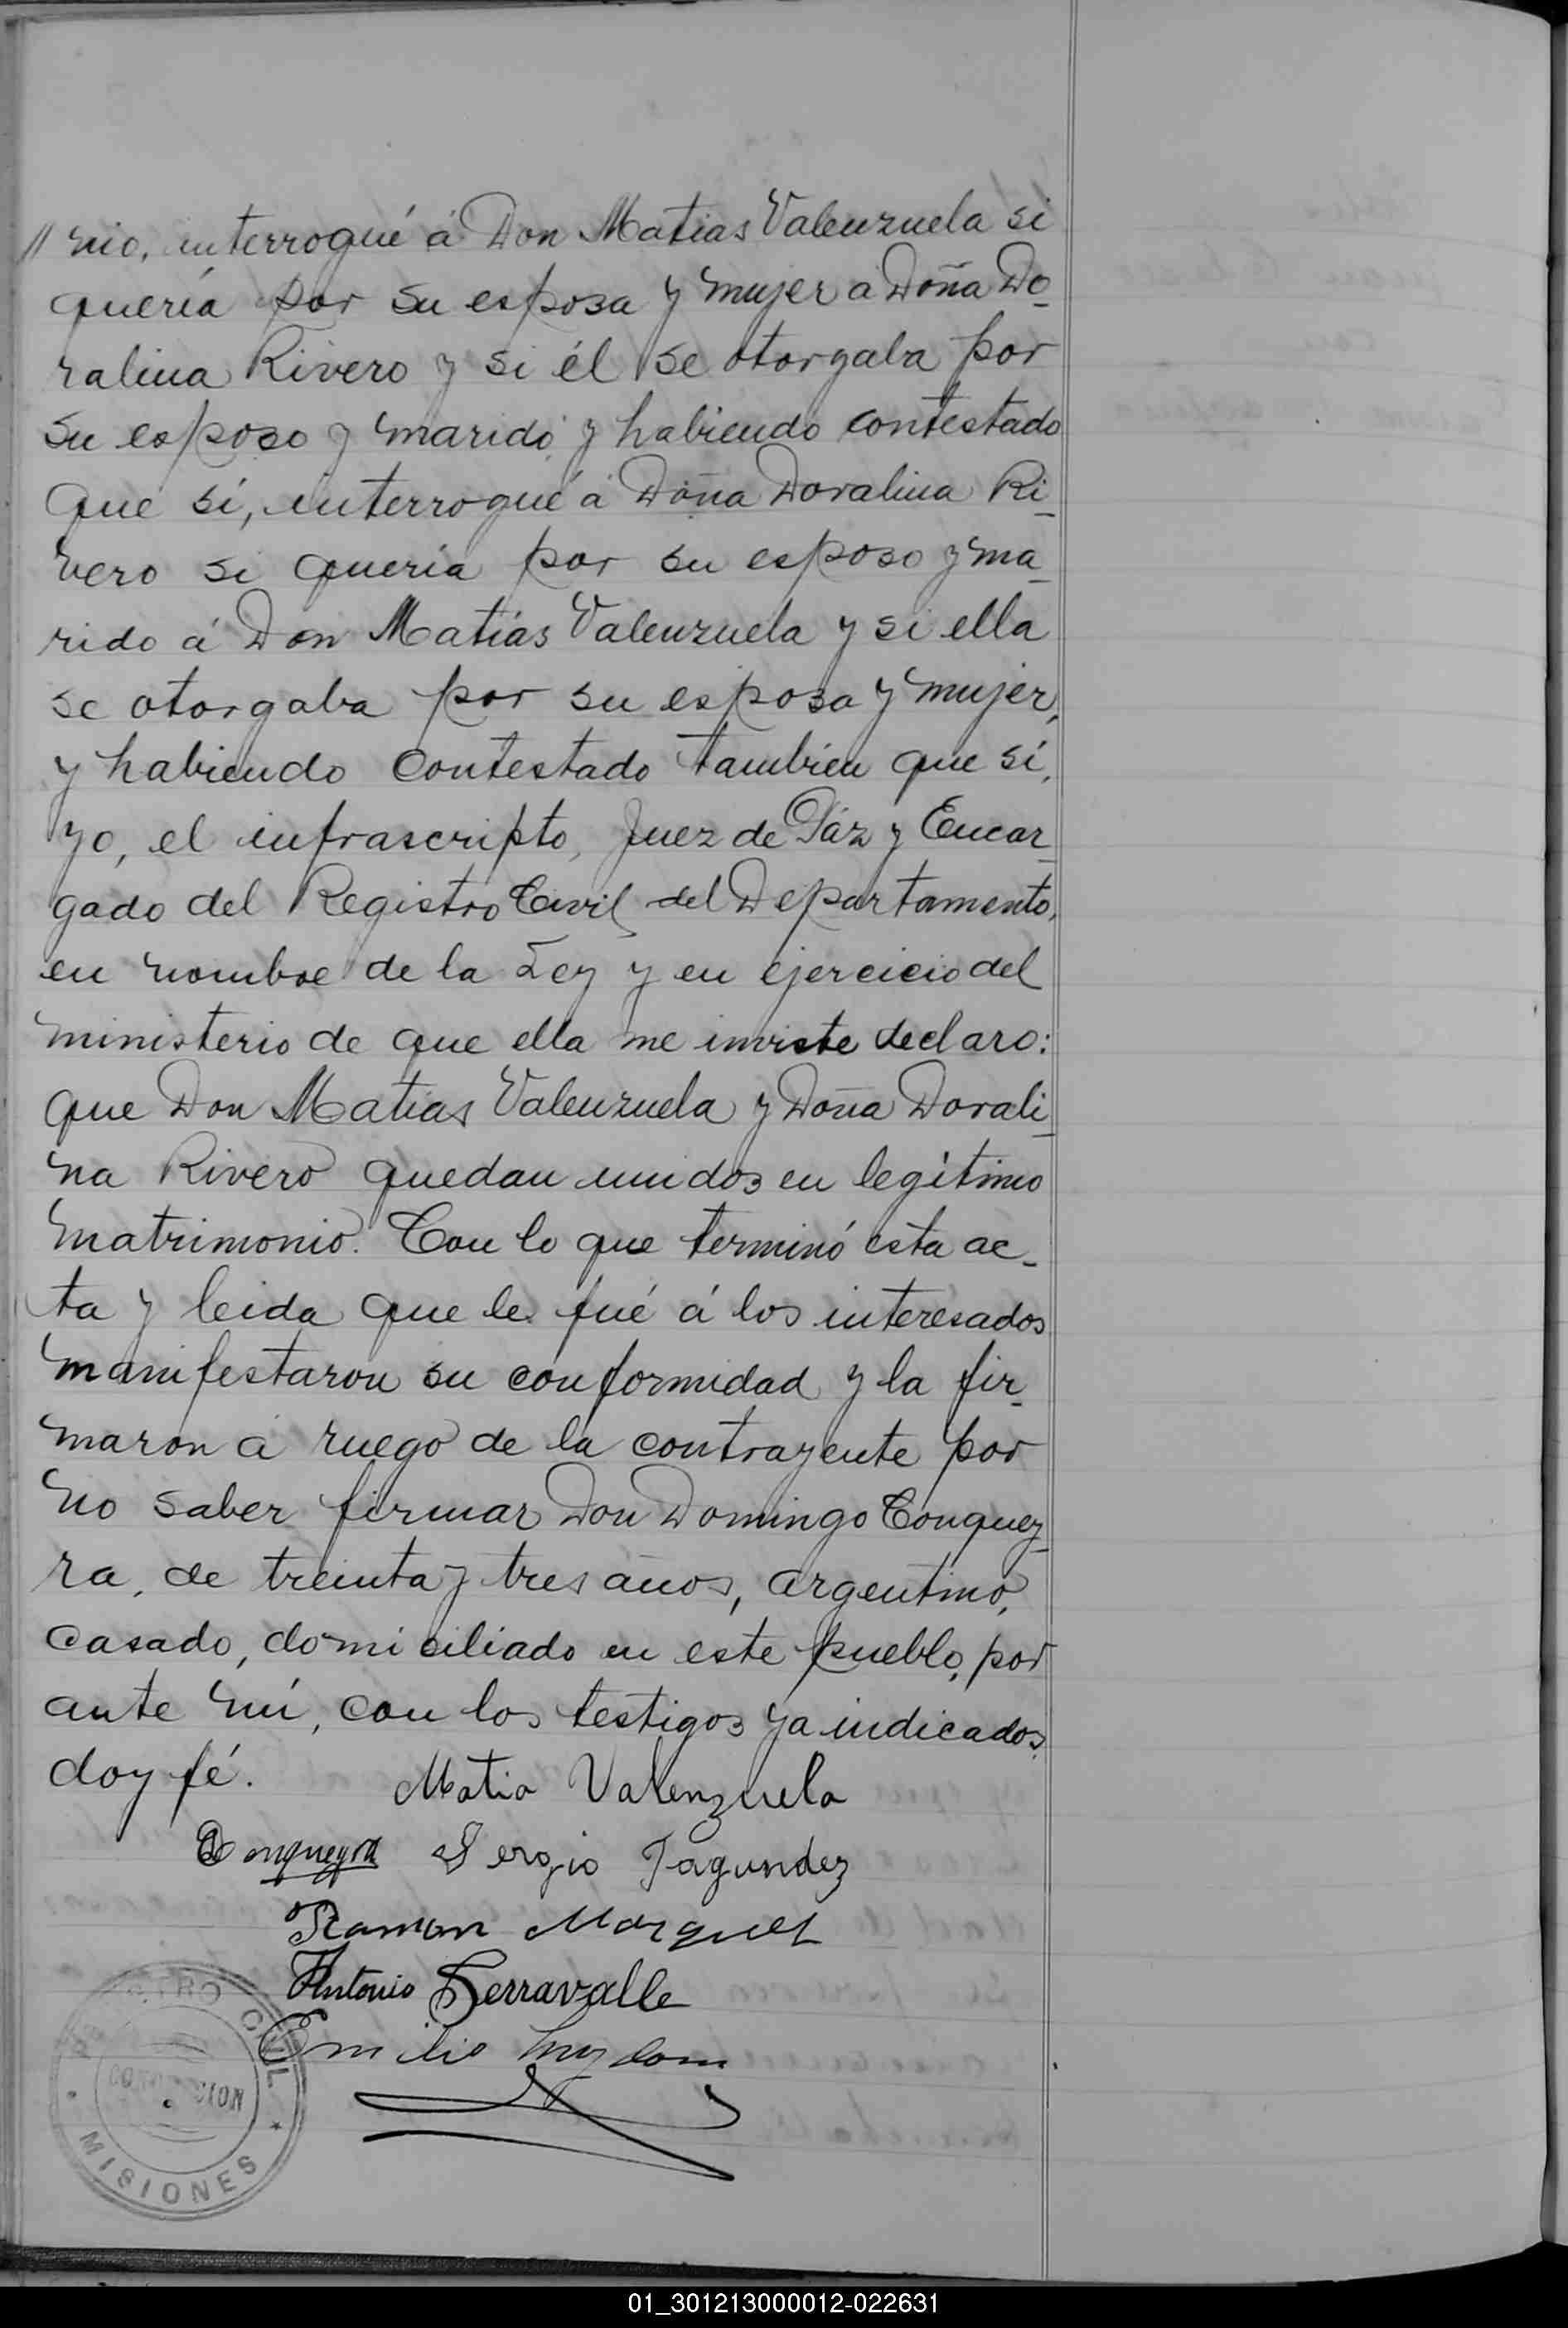 // nio, interrogué á Don Matias Valenzuela si
quería por su esposa y mujer a Doña Do_
ralina Rivero y si él se otorgaba por
su esposo y marido, y habiendo contestado
que sí, interrogué á Doña Doralina Ri_
vero si quería por su esposo y ma_
rido á Don Matías Valenzuela y si ella
se otorgaba por su esposa y mujer,
y habiendo contestado también que sí,
yo, el infrascripto, Juez de Páz y Encar_
gado del Registro Civil del Departamento,
en nombre de la Ley y en ejercicio del
ministerio de que ella me inviste declaro:
que Don Matias Valenzuela y Doña Dorali_
na Rivero quedan unidos en legítimo
matrimonio. Con lo que terminó esta ac_
ta y leida que le fué á los interesados
manifestaron su conformidad y la fir_
maron a ruego de la contrayente por
no saber firmar Don Domingo Conquey_
ra, de treinta y tres años, argentino,
casado, domiciliado en este pueblo, por
ante mí, con los testigos ya indicados,
doy fé. Matia Valenzuela
Conqueyra Sergio Fagundez
Ramon Marquez
Antonio Serravalle
Emilio
CIVIL
MISIONES
01_301213000012-022631